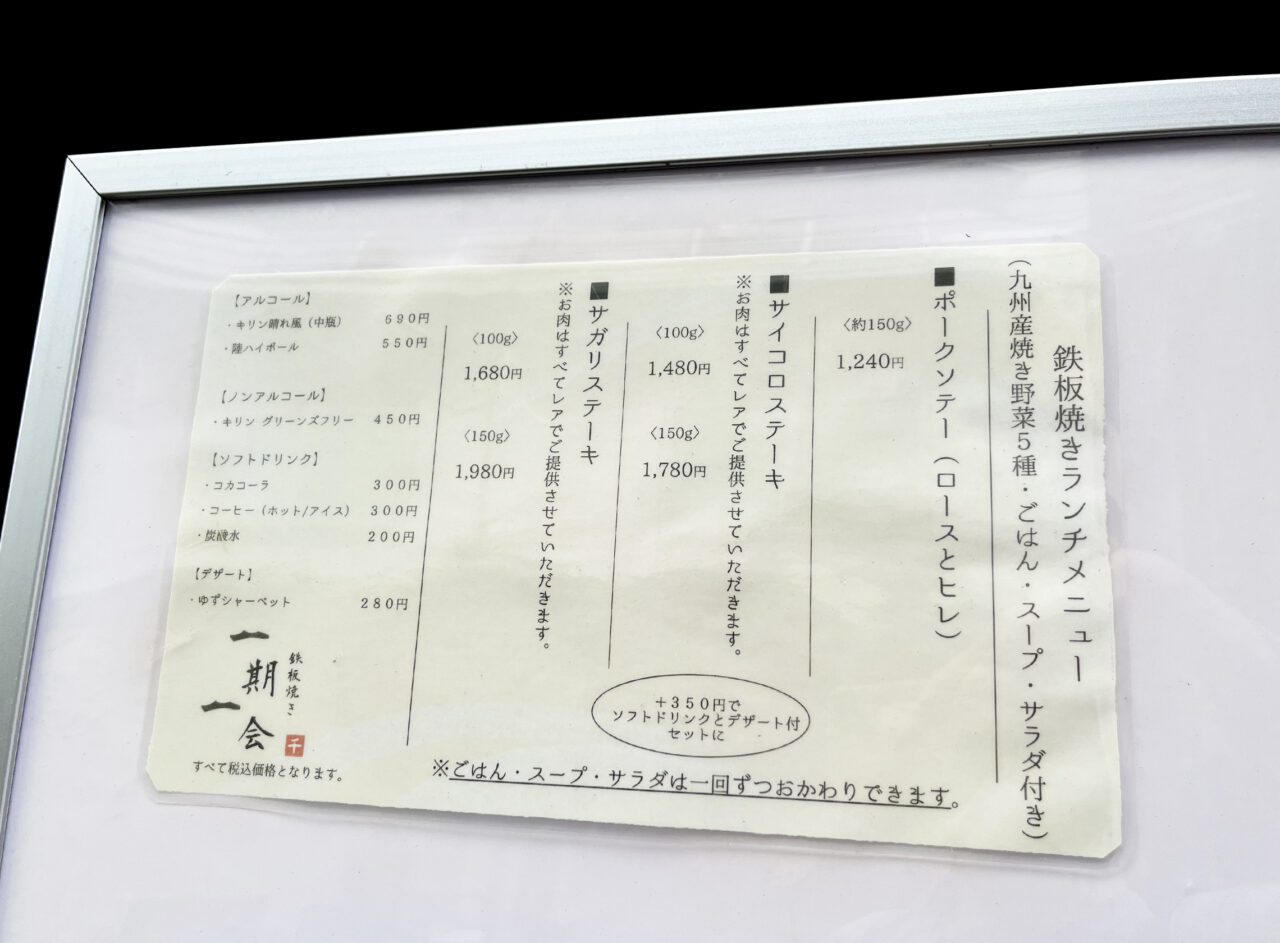 鉄板焼きランチメニュー
（九州産焼き野菜５種・ごはん・スープ・サラダ付き）
■ポークソテー（ロースとヒレ）
〈約150g〉
1,240円
■サイコロステーキ
※お肉はすべてレアでご提供させていただきます。
〈100g〉
1,480円
〈150g〉
1,780円
■サガリステーキ
※お肉はすべてレアでご提供させていただきます。
〈100g〉
1,680円
〈150g〉
1,980円
＋３５０円で
ソフトドリンクとデザート付
セットに
※ごはん・スープ・サラダは一回ずつおかわりできます。
【アルコール】
・キリン晴れ風（中瓶） ６９０円
・陸ハイボール ５５０円
【ノンアルコール】
・キリン グリーンズフリー ４５０円
【ソフトドリンク】
・コカコーラ ３００円
・コーヒー（ホット/アイス） ３００円
・炭酸水 ２００円
【デザート】
・ゆずシャーベット ２８０円
鉄板焼き
一期一会
千
すべて税込価格となります。